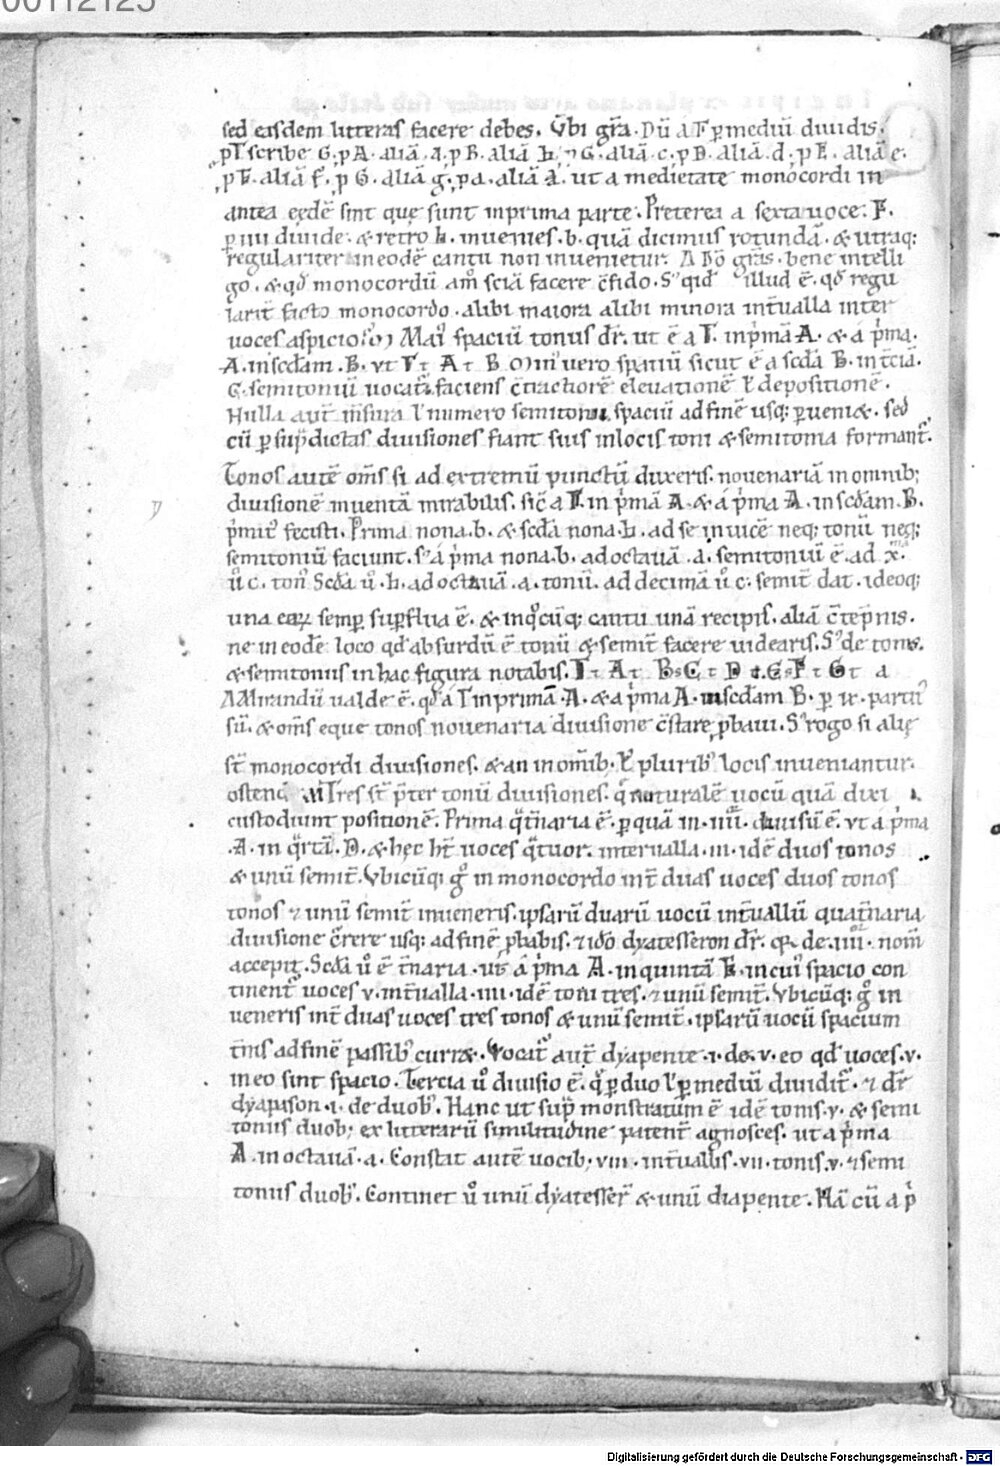 00112125
sed eisdem litteras facere debes. Vbi gr̄a. Dū a Γ p mediū diuidis.
p Γ scribe G. p A. aliā .a. p B. aliā ♮. ⁊ G. aliā .c. p D. aliā .d. p E. aliā e.
p F. aliā f. p G. aliā g. p a. aliā a. ut a medietate monocordi in
antea eędē sint quę sunt in prima parte. Preterea a sexta uoce. F.
p iiii diuide. & retro ♮. inuenies .b. quā dicimus rotundā. & utraq;
regulariter in eodē cantu non inuenietur. bene intelli
go. & qd̄ monocordū am̊ sciā facere c̄fido. S; qid illud ē. qd̄ regu
larit̄ facto monocordo. alibi maiora alibi minora int̄ualla inter
uoces aspicio. Mai᷒ spaciū tonus dr̄. ut ē a Γ. in p̍mā A. & a p̍ma.
A. in scd̄am .B. Min᷒ uero spatiū sicut ē a scd̄a B. in t̄ciā.
C. semitoniū uocat᷒. faciens elevationē l̄ depositionē.
Nulla aut̄ m̄sura l̄ numero semitonii spaciū ad finē usq; pueniæ. sed
cū p sup̄dictas diuisiones fiant suis in locis toni & semitonia formant᷒.
Tonos autē om̄s si ad extremū punctū duxeris. nouenariā in omnib;
diuisionē inuentā mirabilis. sic̄ a Γ. in p̍mā A. & a p̍ma A. in scd̄am .B.
p̍mit᷒ fecisti. Prima nona .b. & scd̄a nona .♮. ad se inuicē neq; tonū neq;
semitoniū faciunt. s; a p̍ma nona .b. ad octauā .a. semitoniū ē. ad .x.
ů c. ton᷒. Scd̄a ů .♮. ad octauā .a. tonū. ad decimā ů c. semit̄ dat. ideoq;
una eaꝝ semp supflua ē. & in qͦcūq; cantu unā recipis. aliā c̄tēpnis.
ne in eodē loco qd̄ absurdū ē tonū & semit̄ facere uidearis. S; de tonis.
& semitoniis in hac figura notabis. Γ t A t B s C t D t E s F t G t a
Mirandū ualde ē. qd̄ a Γ in primā A. & a p̍ma A. in scd̄am B. p ix. partit᷒
sū. & om̄s eque tonos nouenaria diuisione c̄stare pbaui. S; rogo si alię
st̄ monocordi diuisiones. & an in om̄ib. l̄ plurib᷒ locis inueniantur.
ostend Tres st̄ p̄ter tonū diuisiones. q̄ naturalē uocū quā dixi
custodiunt positionē. Prima q̄t̄naria ē. p quā in .iiii. diuisū ē. vt a p̍ma
.A. in q̄rtā .D. & hęc ht̄ uoces q̄tuor. interualla .iii. idē duos tonos
& unū semit̄. Vbicūq; gͦ in monocordo int̄ duas uoces duos tonos
tonos ⁊ unū semit̄ inueneris. ipsarū duarū uocū int̄uallū quat̄naria
diuisione c̄rere usq; ad finē pbabis. ⁊ idō dyatesseron dr̄. de .iiii. nom̄
accepit. Scd̄a ů ē t̄naria. ut a p̍ma A. in quintā E. in cui᷒ spacio con
tinent᷒ uoces v. int̄ualla .iiii. idē toni tres. ⁊ unū semit̄. Vbicūq; gͦ in
ueneris int̄ duas uoces tres tonos & unū semit̄. ipsarū uocū spacium
t̄nis ad finē passib᷒ curræ. Vocat᷒ aut̄ dyapente .i. de .v. eo qd̄ uoces .v.
in eo sint spacio. Tercia ů diuisio ē. q̄ p duo l̄ p mediū diuidit᷒. ⁊ dr̄
dyapason .i. de duob᷒. Hanc ut sup̄ monstratum ē idē tonis .v. & semi
toniis duob; ex litterarū similitudine patent̄ agnosces. ut a p̍ma
A. in octauā .a. Constat autē uocib; viii. int̄uallis .vii. tonis .v. ⁊ semi
toniis duob᷒. Continet ů unū dyatesser̄ & unū diapente. Nā cū a p̍
Digitalisierung gefördert durch die Deutsche Forschungsgemeinschaft - DFG